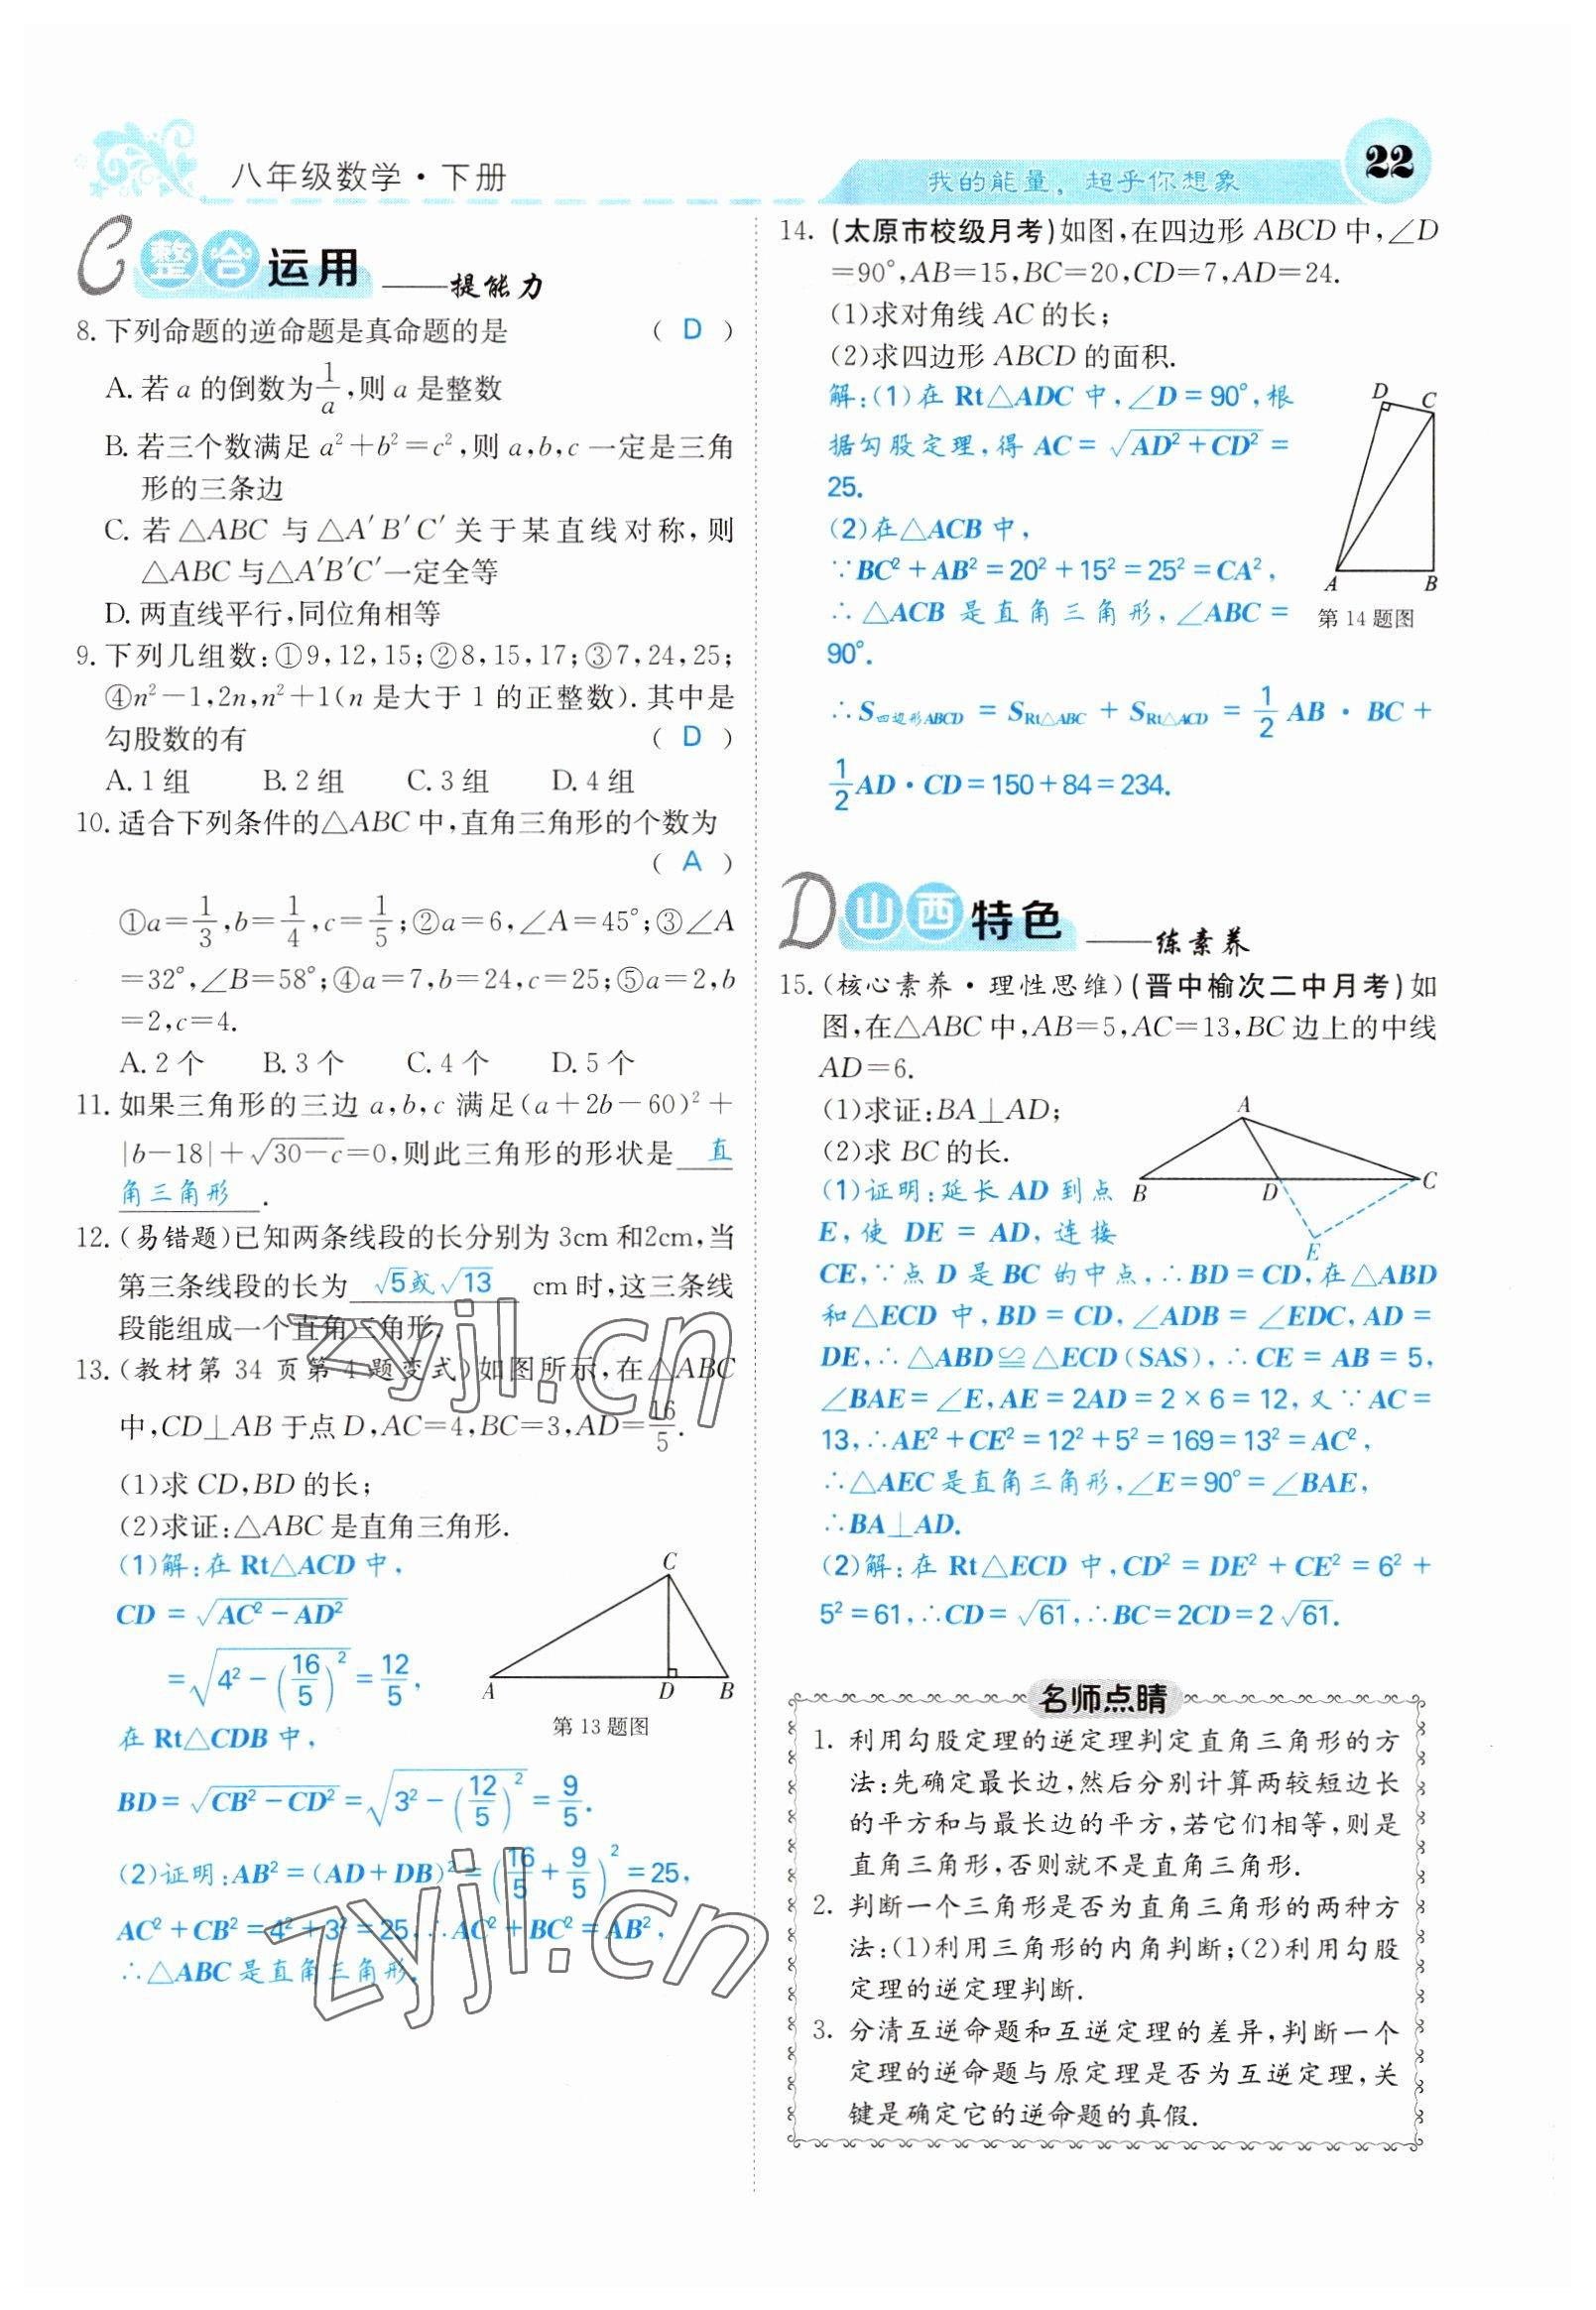 八年级数学·下册
我的能量，超乎你想象
22
C 整合运用——提能力
8. 下列命题的逆命题是真命题的是 （ D ）
A. 若 a 的倒数为1/a,则 a 是整数
B. 若三个数满足 a²+b²=c²,则 a,b,c 一定是三角
形的三条边
C. 若△ABC 与△A′B′C′关于某直线对称,则
△ABC与△A′B′C′一定全等
D. 两直线平行,同位角相等
9. 下列几组数:①9,12,15;②8,15,17;③7,24,25;
④n²-1,2n,n²+1(n 是大于 1 的正整数).其中是
勾股数的有 （ D ）
A. 1 组 B. 2 组 C. 3 组 D. 4 组
10. 适合下列条件的△ABC 中,直角三角形的个数为
（ A ）
①a=1/3,b=1/4,c=1/5;②a=6,∠A=45°;③∠A
=32°,∠B=58°;④a=7,b=24,c=25;⑤a=2,b
=2,c=4.
A. 2 个 B. 3 个 C. 4 个 D. 5 个
11. 如果三角形的三边 a,b,c 满足(a+2b-60)²+
|b-18|+√(30-c)=0,则此三角形的形状是 直
角三角形 .
12. (易错题)已知两条线段的长分别为 3cm 和2cm,当
第三条线段的长为 √5或√13 cm 时,这三条线
段能组成一个直角三角形.
13. (教材第 34 页第 4 题变式)如图所示,在△ABC
中,CD⊥AB 于点 D,AC=4,BC=3,AD=16/5.
(1)求 CD,BD 的长;
(2)求证:△ABC 是直角三角形.
(1)解:在 Rt△ACD 中,
CD = √(AC²-AD²)
=√(4²-(16/5)²)=12/5,
在 Rt△CDB 中,
BD=√(CB²-CD²)=√(3²-(12/5)²)=9/5.
(2)证明:AB²=(AD+DB)²=(16/5+9/5)²=25,
AC²+CB²=4²+3²=25,∴AC²+BC²=AB²,
∴△ABC 是直角三角形.
C
A D B
第 13 题图
14. (太原市校级月考)如图,在四边形 ABCD 中,∠D
=90°,AB=15,BC=20,CD=7,AD=24.
(1)求对角线 AC 的长;
(2)求四边形 ABCD 的面积.
解:(1)在 Rt△ADC 中,∠D=90°,根
据勾股定理,得 AC=√(AD²+CD²)=
25.
(2)在△ACB 中,
∵BC²+AB²=20²+15²=25²=CA²,
∴△ACB 是直角三角形,∠ABC=
90°.
∴S四边形ABCD = SRt△ABC + SRt△ACD = 1/2 AB·BC+
1/2 AD·CD=150+84=234.
D C
A B
第 14 题图
D 山西特色——练素养
15. (核心素养·理性思维)(晋中榆次二中月考)如
图,在△ABC 中,AB=5,AC=13,BC 边上的中线
AD=6.
(1)求证:BA⊥AD;
(2)求 BC 的长.
A
B D C
E
(1)证明:延长 AD 到点
E,使 DE=AD,连接
CE,∵点 D 是 BC 的中点,∴BD=CD,在△ABD
和△ECD 中,BD=CD,∠ADB=∠EDC,AD=
DE,∴△ABD≌△ECD(SAS),∴CE=AB=5,
∠BAE=∠E,AE=2AD=2×6=12,又∵AC=
13,∴AE²+CE²=12²+5²=169=13²=AC²,
∴△AEC 是直角三角形,∠E=90°=∠BAE,
∴BA⊥AD.
(2)解:在 Rt△ECD 中,CD²=DE²+CE²=6²+
5²=61,∴CD=√61,∴BC=2CD=2√61.
名师点睛
1. 利用勾股定理的逆定理判定直角三角形的方
法:先确定最长边,然后分别计算两较短边长
的平方和与最长边的平方,若它们相等,则是
直角三角形,否则就不是直角三角形.
2. 判断一个三角形是否为直角三角形的两种方
法:(1)利用三角形的内角判断;(2)利用勾股
定理的逆定理判断.
3. 分清互逆命题和互逆定理的差异,判断一个
定理的逆命题与原定理是否为互逆定理,关
键是确定它的逆命题的真假.
zyjl.cn
zyjl.cn